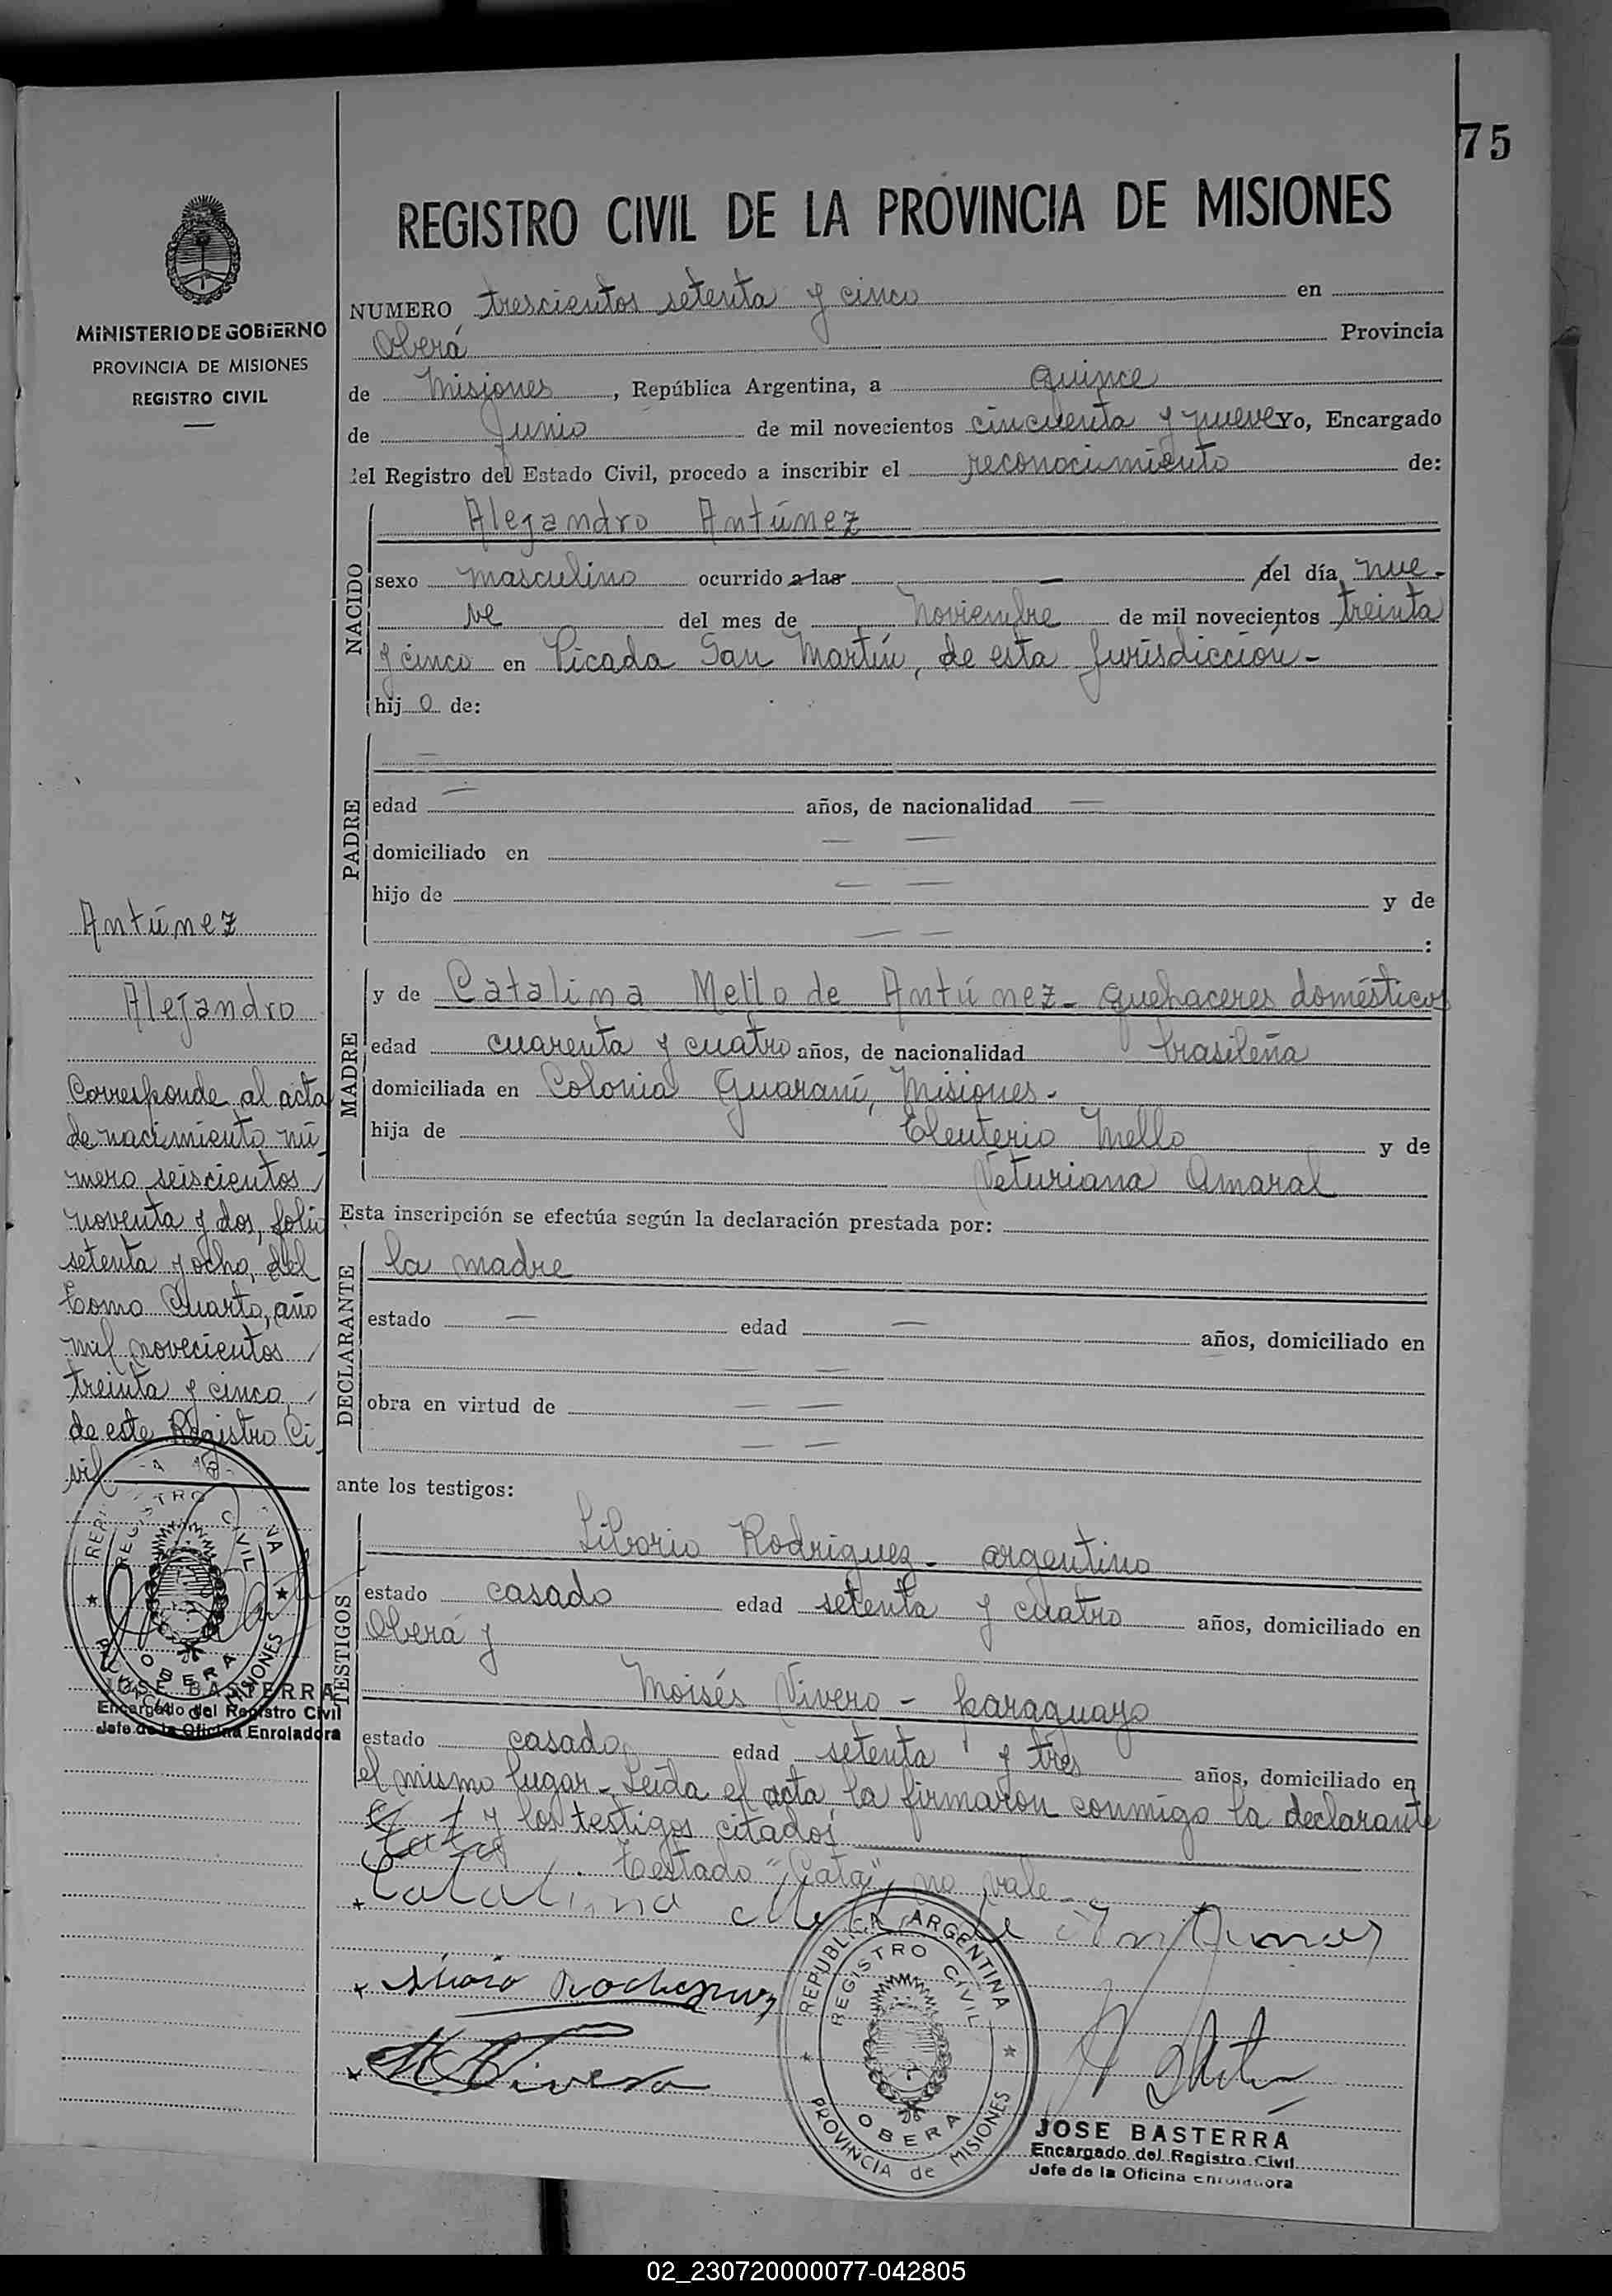 75
REGISTRO CIVIL DE LA PROVINCIA DE MISIONES
MINISTERIO DE GOBIERNO
PROVINCIA DE MISIONES
REGISTRO CIVIL
NUMERO trescientos setenta y cinco en
Oberá Provincia
de Misiones, República Argentina, a Quince
de Junio de mil novecientos cincuenta y nueve Yo, Encargado
del Registro del Estado Civil, procedo a inscribir el reconocimiento de:
NACIDO
Alejandro Antúnez
sexo masculino ocurrido a las — del día nue-
ve del mes de Noviembre de mil novecientos treinta
y cinco en Picada San Martín, de esta Jurisdicción-
hijo de:
PADRE
edad — años, de nacionalidad —
domiciliado en — —
hijo de — — y de
— — :
MADRE
y de Catalina Mello de Antúnez- Quehaceres domésticos
edad cuarenta y cuatro años, de nacionalidad brasileña
domiciliada en Colonia Guaraní, Misiones-
hija de Eleuterio Mello y de
Veturiana Amaral
Esta inscripción se efectúa según la declaración prestada por:
DECLARANTE
la madre
estado — edad — años, domiciliado en
— —
obra en virtud de — —
— —
ante los testigos:
TESTIGOS
Liborio Rodriguez- argentino
estado casado edad setenta y cuatro años, domiciliado en
Oberá y
Moisés Vivero - paraguayo
estado casado edad setenta y tres años, domiciliado en
el mismo lugar- Leída el acta la firmaron conmigo la declarante
y los testigos citados
Testado "Cata", no vale-
Catalina Mello de Antunes
M Vivero
Antúnez
Alejandro
Corresponde al acta
de nacimiento nú-
mero seiscientos
noventa y dos, folio
setenta y ocho, del
Tomo Cuarto, año
mil novecientos
treinta y cinco,
de este Registro Ci-
vil
REPUBLICA ARGENTINA
REGISTRO CIVIL
OBERA
PROVINCIA de MISIONES
JOSE BASTERRA
Encargado del Registro Civil
Jefe de la Oficina Enroladora
REPUBLICA ARGENTINA
REGISTRO CIVIL
OBERA
PROVINCIA de MISIONES
JOSE BASTERRA
Encargado del Registro Civil
Jefe de la Oficina Enroladora
02_230720000077-042805